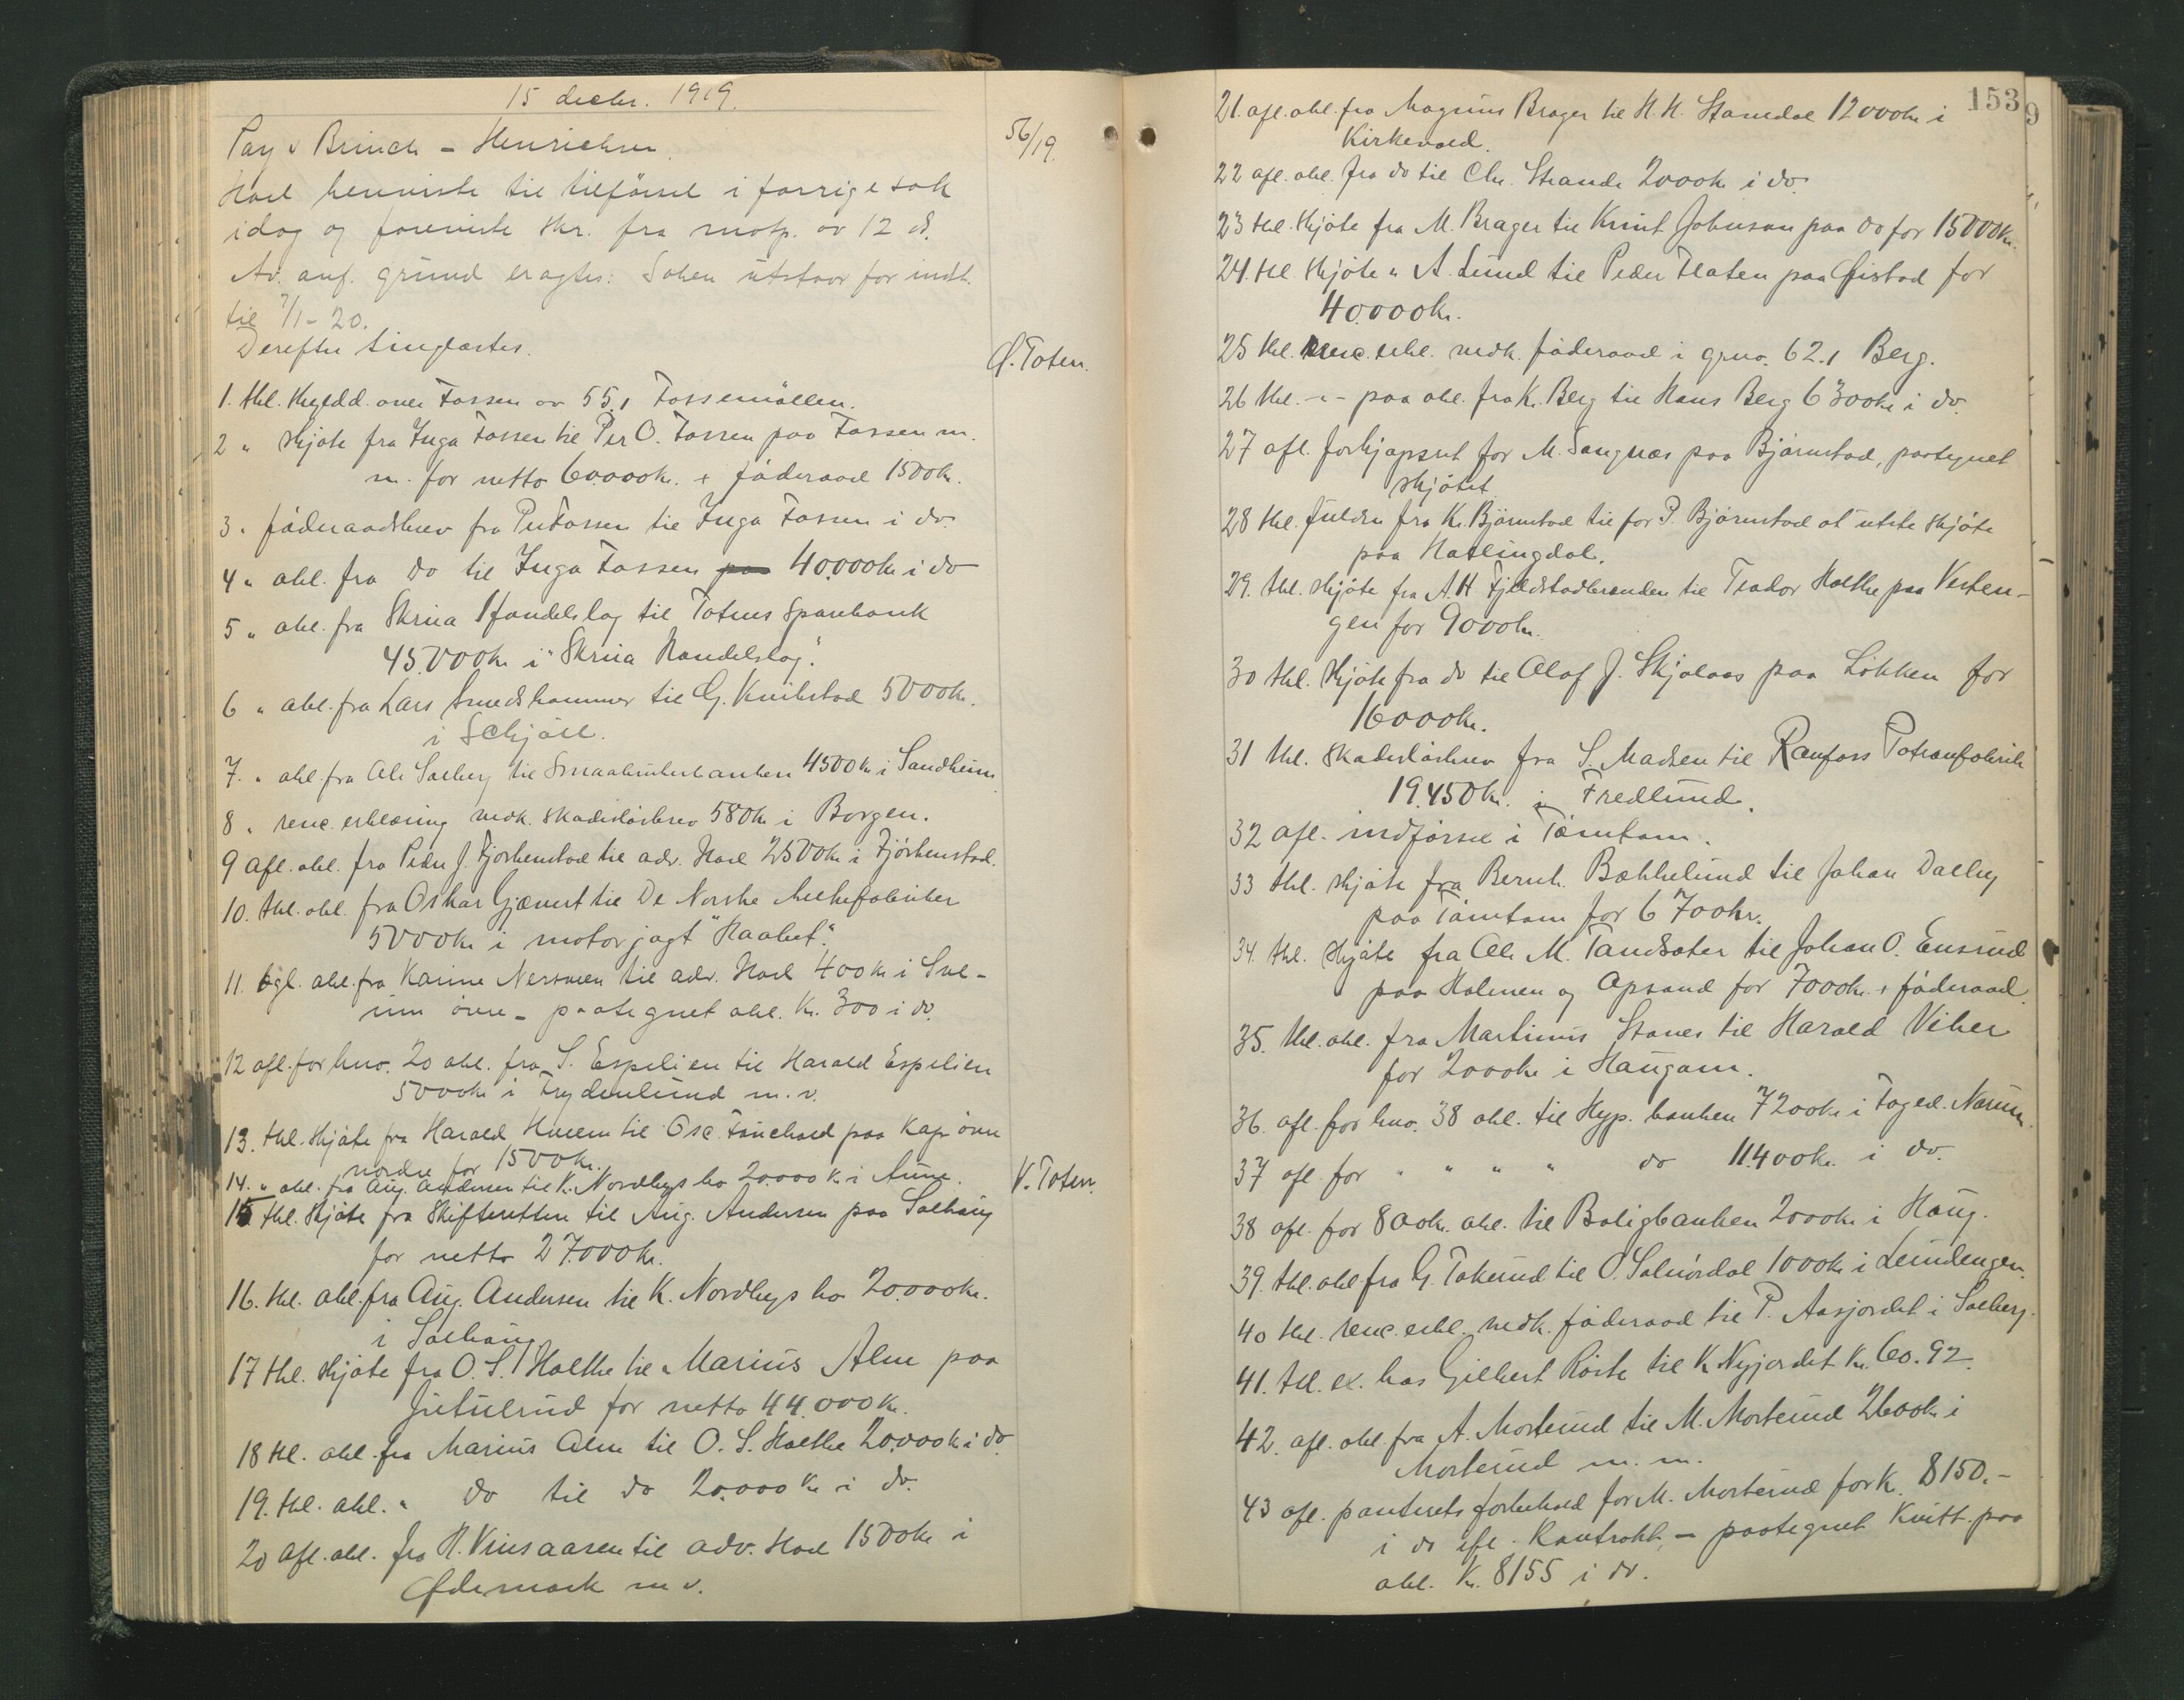 15 decbr. 1919.
Pay v Brinch - Henrichsen.
56/19.
Hoel henviste til tilførsel i forrige sak
idag og foreviste skr. fra motp. av 12 ds.
Av. anf. grund eragtes: Saken utstaar for indk.
til 7/1 - 20.
Derefter tinglæstes.
Ø. Toten.
1. thl. skyldd. over Fossen av 55,1 Fossemøllen.
2 " skjøte fra Inga Fossen til Per O. Fossen paa Fossen m.
m. for netto 60.000 kr. + føderaad 1500 kr.
3 " føderaadsbrev fra Per Fossen til Inga Fossen i do.
4 " obl. fra do til Inga Fossen paa 40.000 kr i do
5 " obl. fra Skrüa Handelslag til Totens Sparebank
45.000 kr i "Skrüa Handelslag".
6 " obl. fra Lars Smedshammer til G. Knibstad 5000 kr.
i
7. " obl. fra Ole Solberg til Smaabrukerbanken 4500 kr i Sandheim
8 " renc. erklæring vedk. skadesløsbrev 580 kr i Borgen.
9 afl. obl. fra Peder J. Fjørkenstad til adv. Hoel 2500 kr i Fjørkenstad.
10. thl. obl. fra Oskar Gjævert til De Norske Melkefabriker
5000 kr i motorjagt "Haabet".
11. tgl. obl. fra Karine Nersveen til adv. Hoel 400 kr i Sve-
üm övre - paategnet obl. Kr. 300 i do.
12 afl. for hno. 20 obl. fra S. Espelien til Harald Espelien
5000 kr i Frydenlünd m. v.
13. thl. skjøte fra Harald til Osc. Fauchald paa Kap övre
nordre for 1500 kr.
14. " obl. fra Aug. Andersen til K. Nordbys bo 20.000 kr i Aune.
V. Toten.
15 thl. skjøte fra Skifteretten til Aug. Andersen paa Solhaug
for netto 27.000 kr.
16. thl. obl. fra Aug. Andersen til K. Nordbys bo 20.000 kr.
i Solhaug
17 thl. skjøte fra O. S. Holthe til Marius Alm paa
Jutulrud for netto 44.000 kr.
18 thl. obl. fra Marius Alm til O. S. Holthe 20.000 kr i do
19. thl. obl. " do til do 20.000 kr i do.
20 afl. obl. fra H. Vinsaasen til adv. Hoel 1500 kr i
Ødemark m v.
153
9
21. afl. obl. fra Magnus Brager til H. H. Stamdal 12000 kr i
Kirkevold.
22 afl. obl. fra do til Chr. Strande 2000 kr i do.
23 thl. skjøte fra M. Brager til Knut Johnsen paa do for 15000 kr.
24. thl. skjøte " A. Lund til Peder Flaten paa Øistad for
40.000 kr.
25 thl. renc. erkl. vedk. føderaad i grno. 62.1 Berg.
26 thl. -"- paa obl. fra K. Berg til Hans Berg 6300 kr i do.
27 afl. forkjøpsret for M. Sangnæs paa Bjørnstad, paategnet
skjøtet.
28 thl. fuldm fra K. Bjørnstad til for P. Bjørnstad at utste skjøte
paa Hatlingdal.
29. thl. skjøte fra A. H Fjeldstadbrenden til Teodor Holthe paa Vesten-
gen for 9000 kr.
30 thl. skjøte fra do til Olaf J. Skjolaas paa Løkken for
16000 kr.
31 thl. skadesløsbrev fra S. Madsen til Raufoss Patronfabrik
19.450 kr. i Fredlund.
32 afl. indførsel i Tømtom.
33 thl. skjøte fra Bernh. Bækkelund til Johan Dalby
paa Tømtom for 6700 kr.
34. thl. skjøte fra Ole M. Tandsæter til Johan O. Ensrud
paa Holmen og Opsand for 7000 kr. + føderaad.
35. thl. obl. fra Martinus Stanes til Harald Viker
for 2000 kr i Haugom.
36. afl. for hno. 38 obl. til Hyp. banken 7200 kr i Foged-Narum.
37 afl. for " " " " do 11.400 kr. i do.
38 afl. for 800 kr. obl. til Boligbanken 2000 kr i Haug.
39. thl. obl fra G. Takerud til O. Solnørdal 1000 kr i Lundengen.
40 thl. renc. erkl. vedk. føderaad til P. Aasjordet i Solberg.
41. thl. ex. hos Gilbert Røste til K. Nyjordet Kr. 60.92.
42. afl. obl. fra A. Morterud til M. Morterud 2600 kr i
Morterud m. m.
43 afl. panterets forbehold for M. Morterud for K. 8150.-
i do ifl. Kontrakt, - paategnet Kvitt. paa
obl. Kr. 8155 i do.